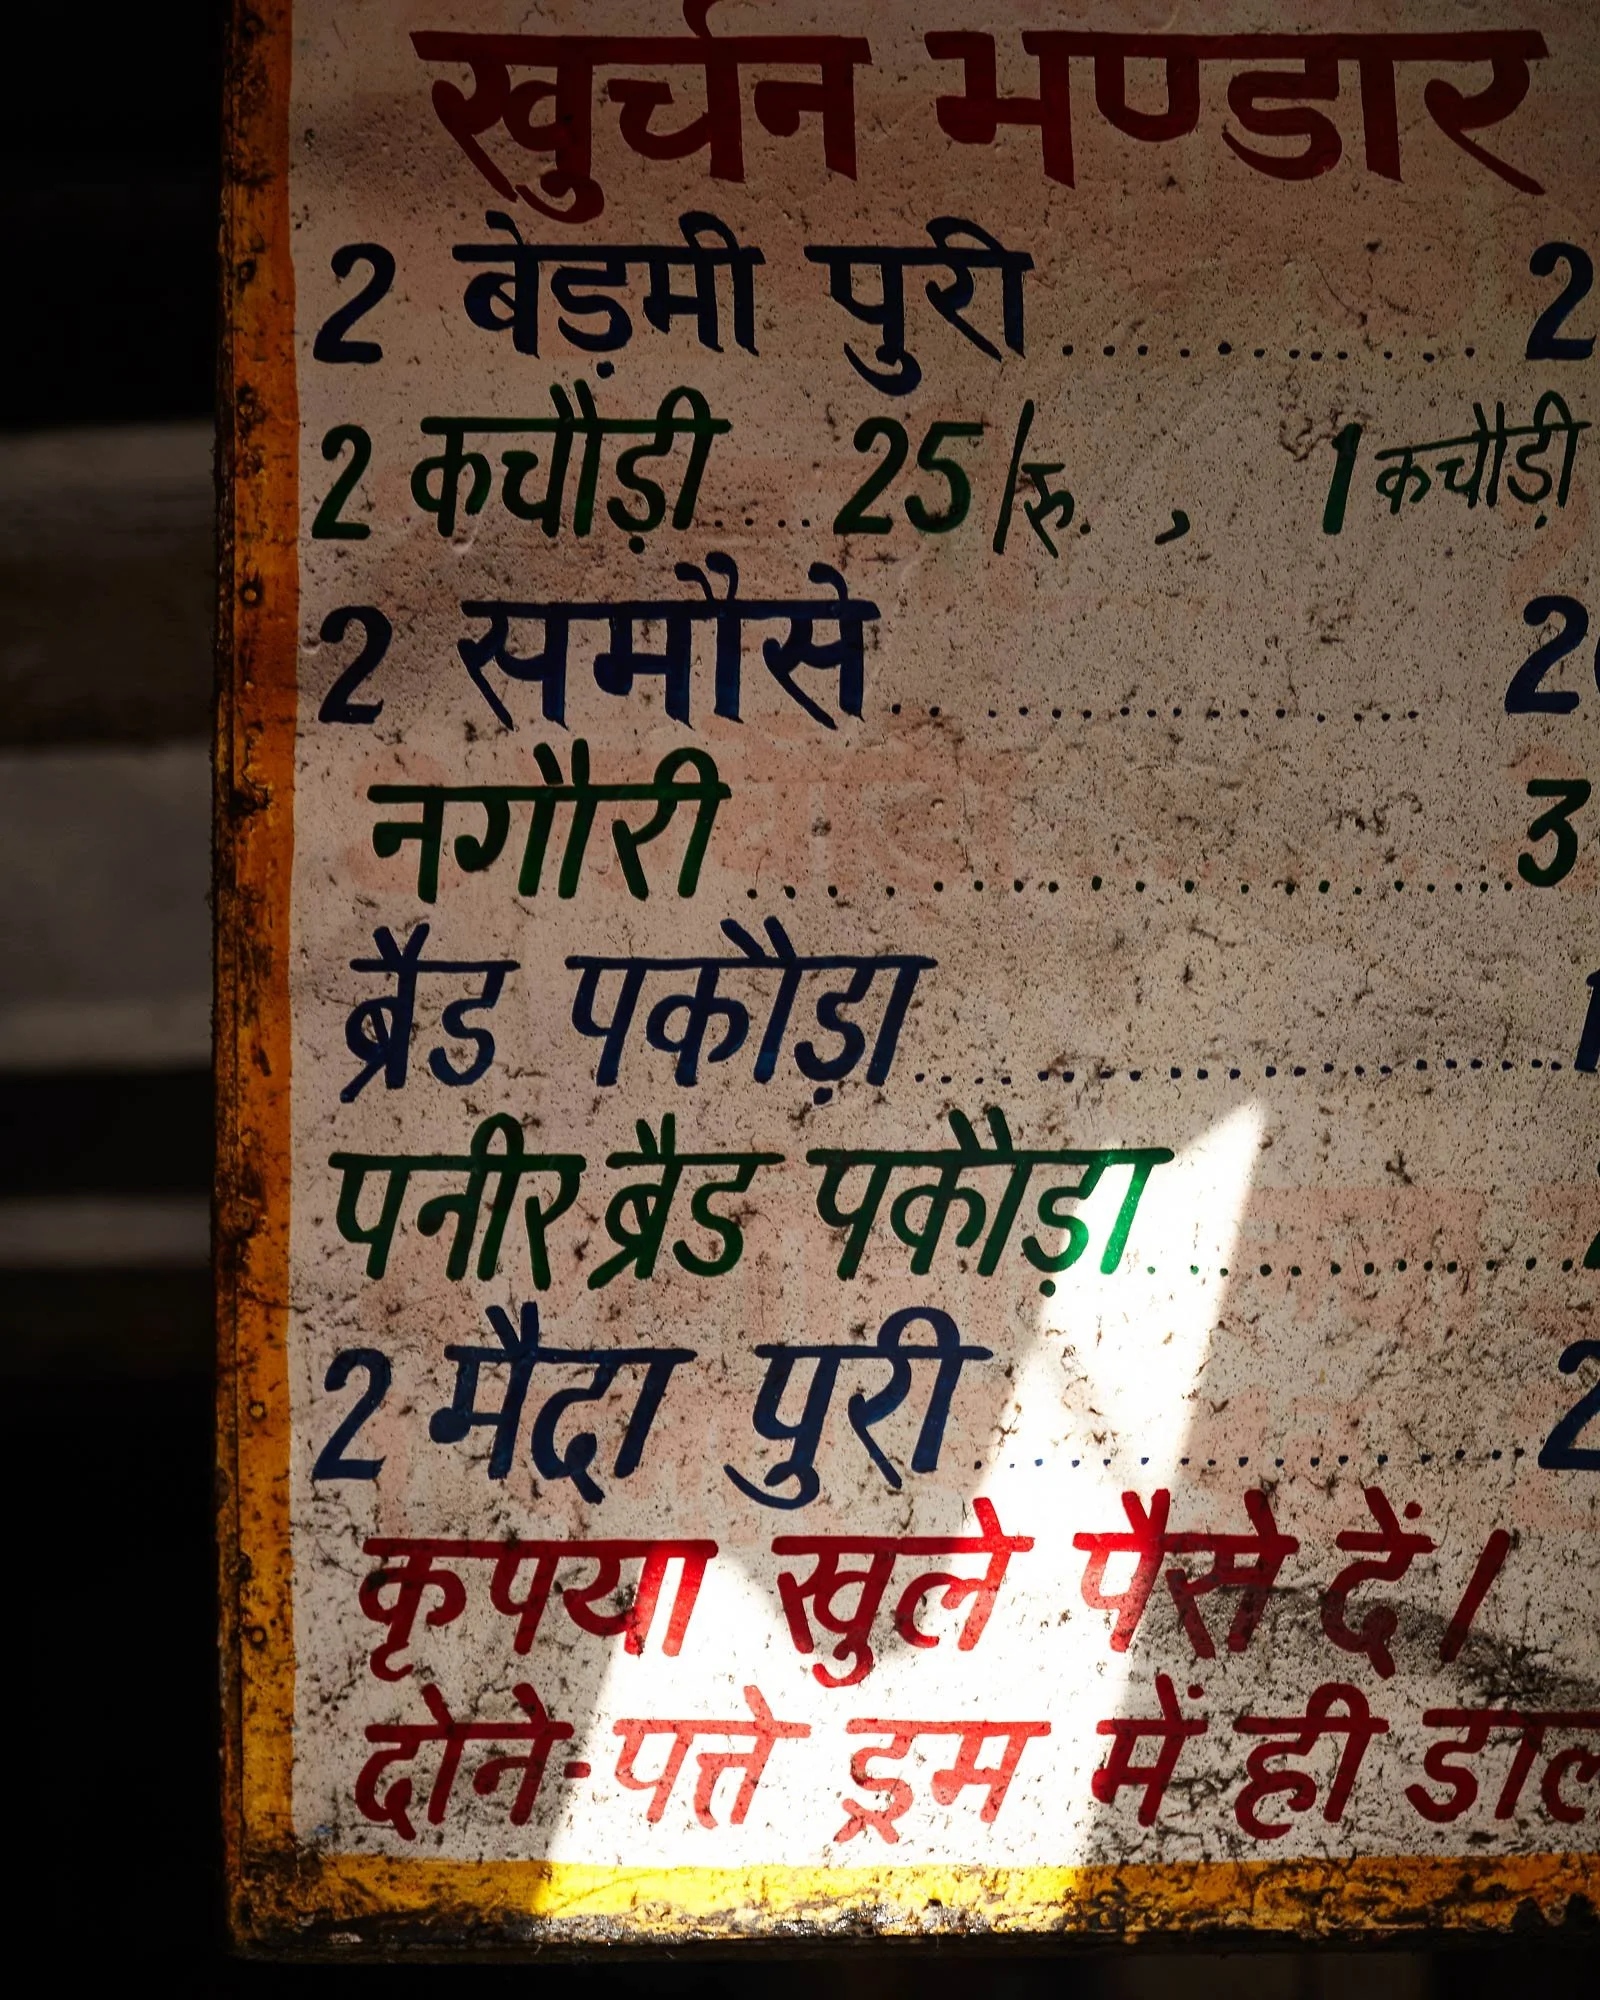 खुर्चन भण्डार
2 बेड़मी पुरी.................. 2
2 कचौड़ी..... 25/रु. , 1 कचौड़ी
2 समौसे.................. 2
नगौरी.................. 3
ब्रैड पकौड़ा..................
पनीर ब्रैड पकौड़ा..................
2 मैदा पुरी.................. 2
कृपया खुले पैसे दें।
दोने-पत्ते ड्रम में ही